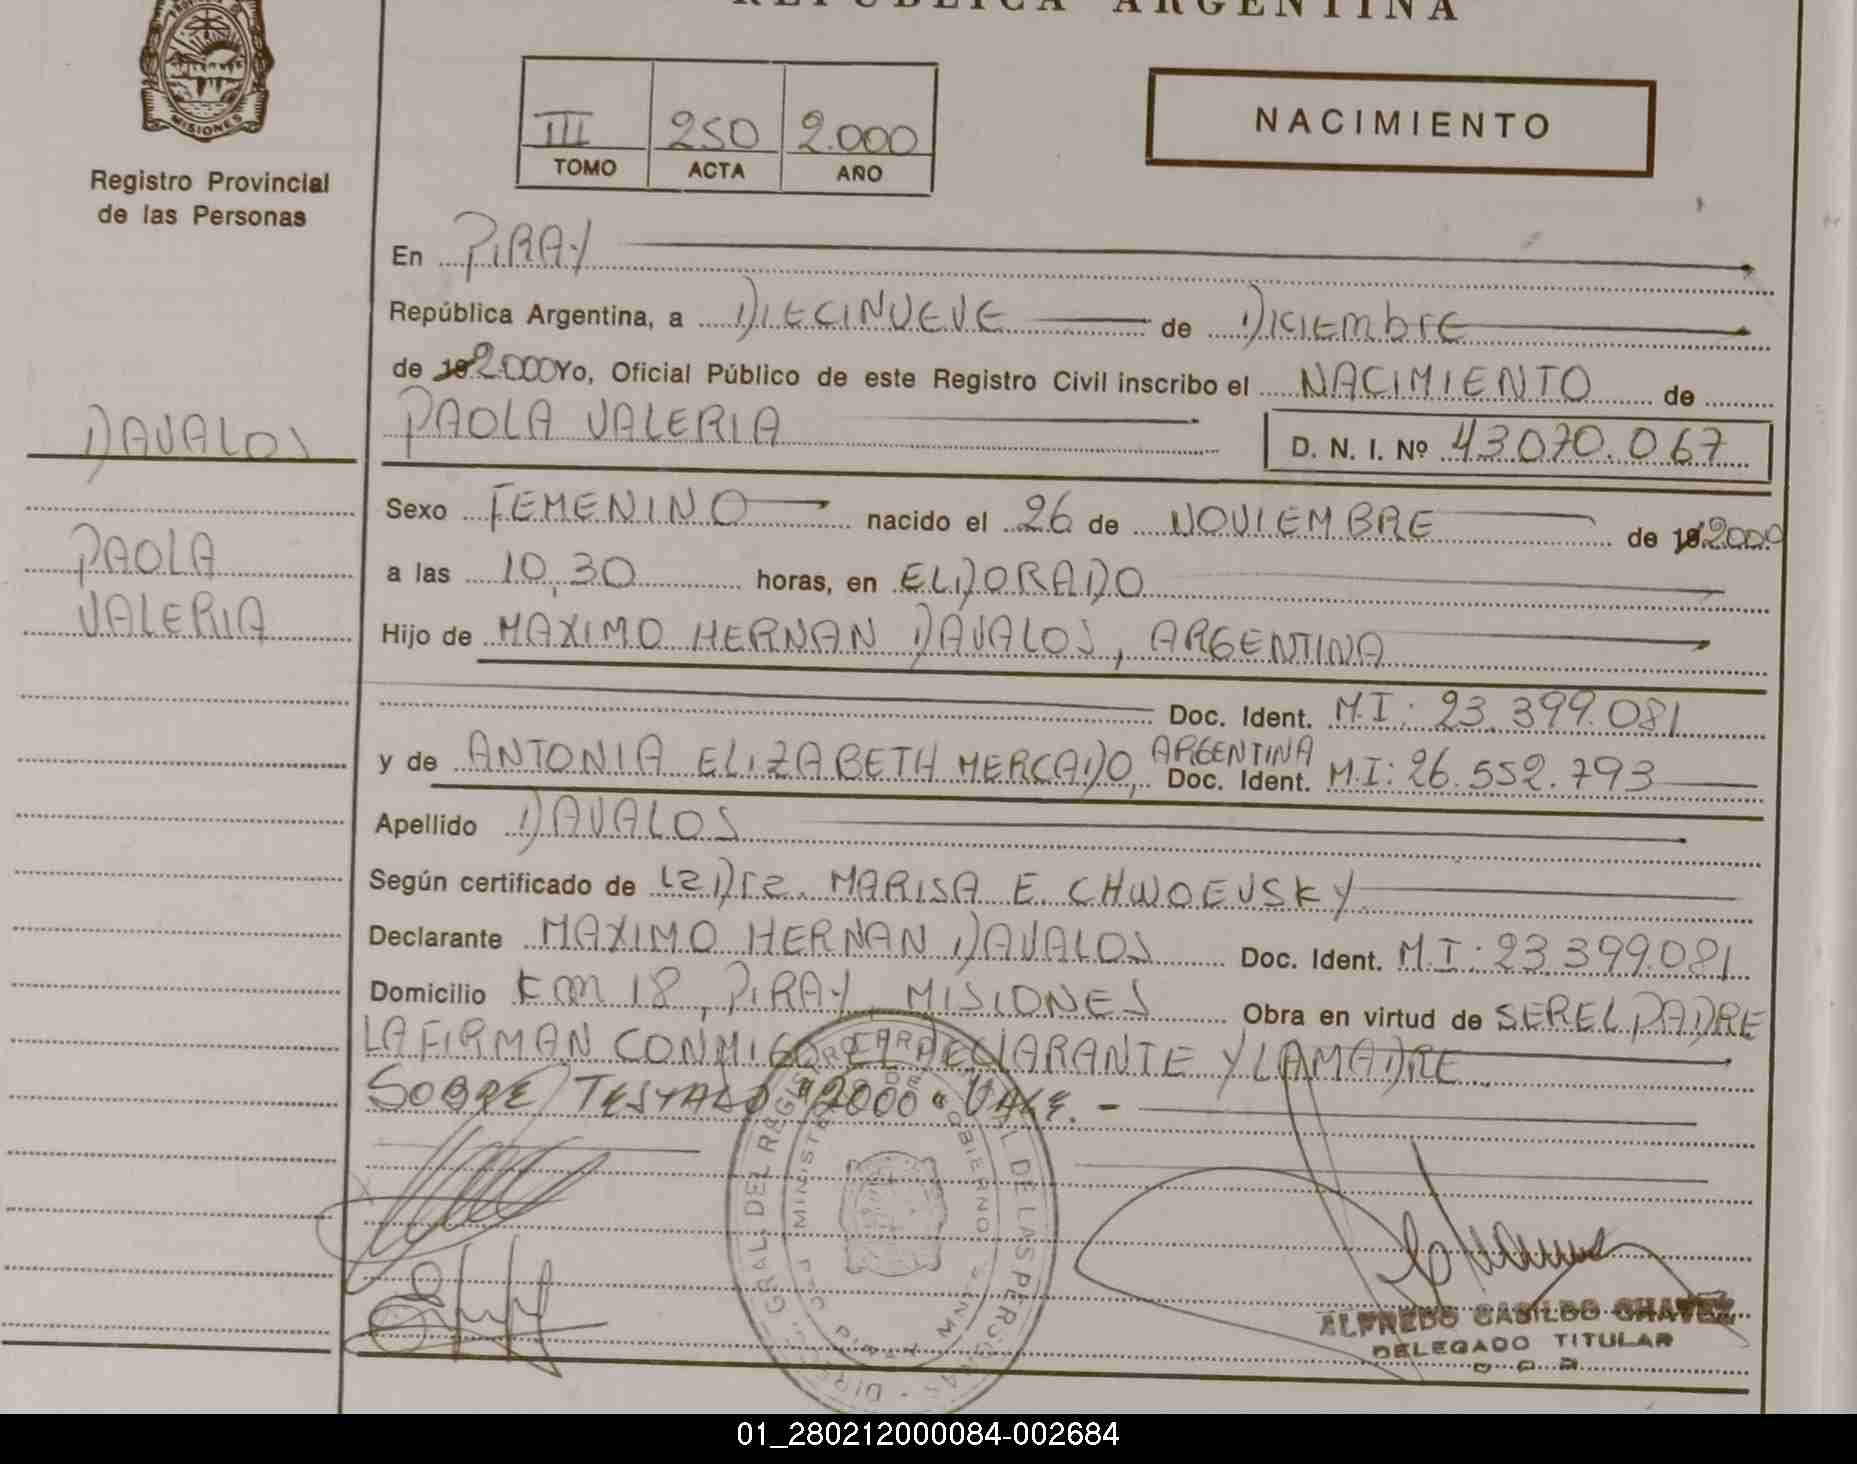 REPUBLICA ARGENTINA
MISIONES
Registro Provincial
de las Personas
III 250 2.000
TOMO ACTA AÑO
NACIMIENTO
En PIRAY
República Argentina, a DIECINUEVE de DICIEMBRE
de 19 2.000 Yo, Oficial Público de este Registro Civil inscribo el NACIMIENTO de
DAVALOS
PAOLA
VALERIA
PAOLA VALERIA D. N. I. Nº 43.070.067
Sexo FEMENINO nacido el 26 de NOVIEMBRE de 19 2000
a las 10,30 horas, en ELDORADO
Hijo de MAXIMO HERNAN DAVALOS, ARGENTINA
Doc. Ident. M.I: 23.399.081
y de ANTONIA ELIZABETH MERCADO, ARGENTINA Doc. Ident. M.I: 26.552.793
Apellido DAVALOS
Según certificado de la Dra. MARISA E. CHWOEVSKY
Declarante MAXIMO HERNAN DAVALOS Doc. Ident. M.I: 23.399.081
Domicilio Km 18, PIRAY, MISIONES Obra en virtud de SER EL PADRE
LA FIRMAN CONMIGO EL DECLARANTE Y LA MADRE.
SOBRE TESTADO "2000" VALE. -
ALFREDO CASILDO CHAVEZ
DELEGADO TITULAR
01_280212000084-002684